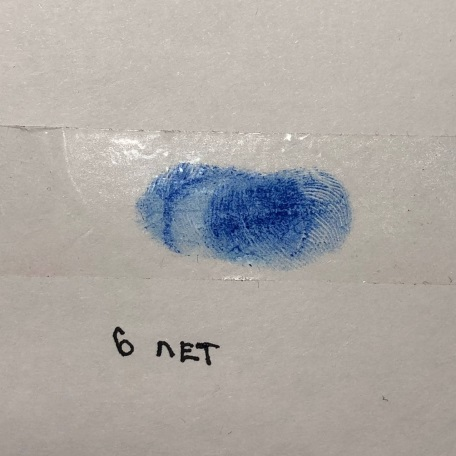 6 лет